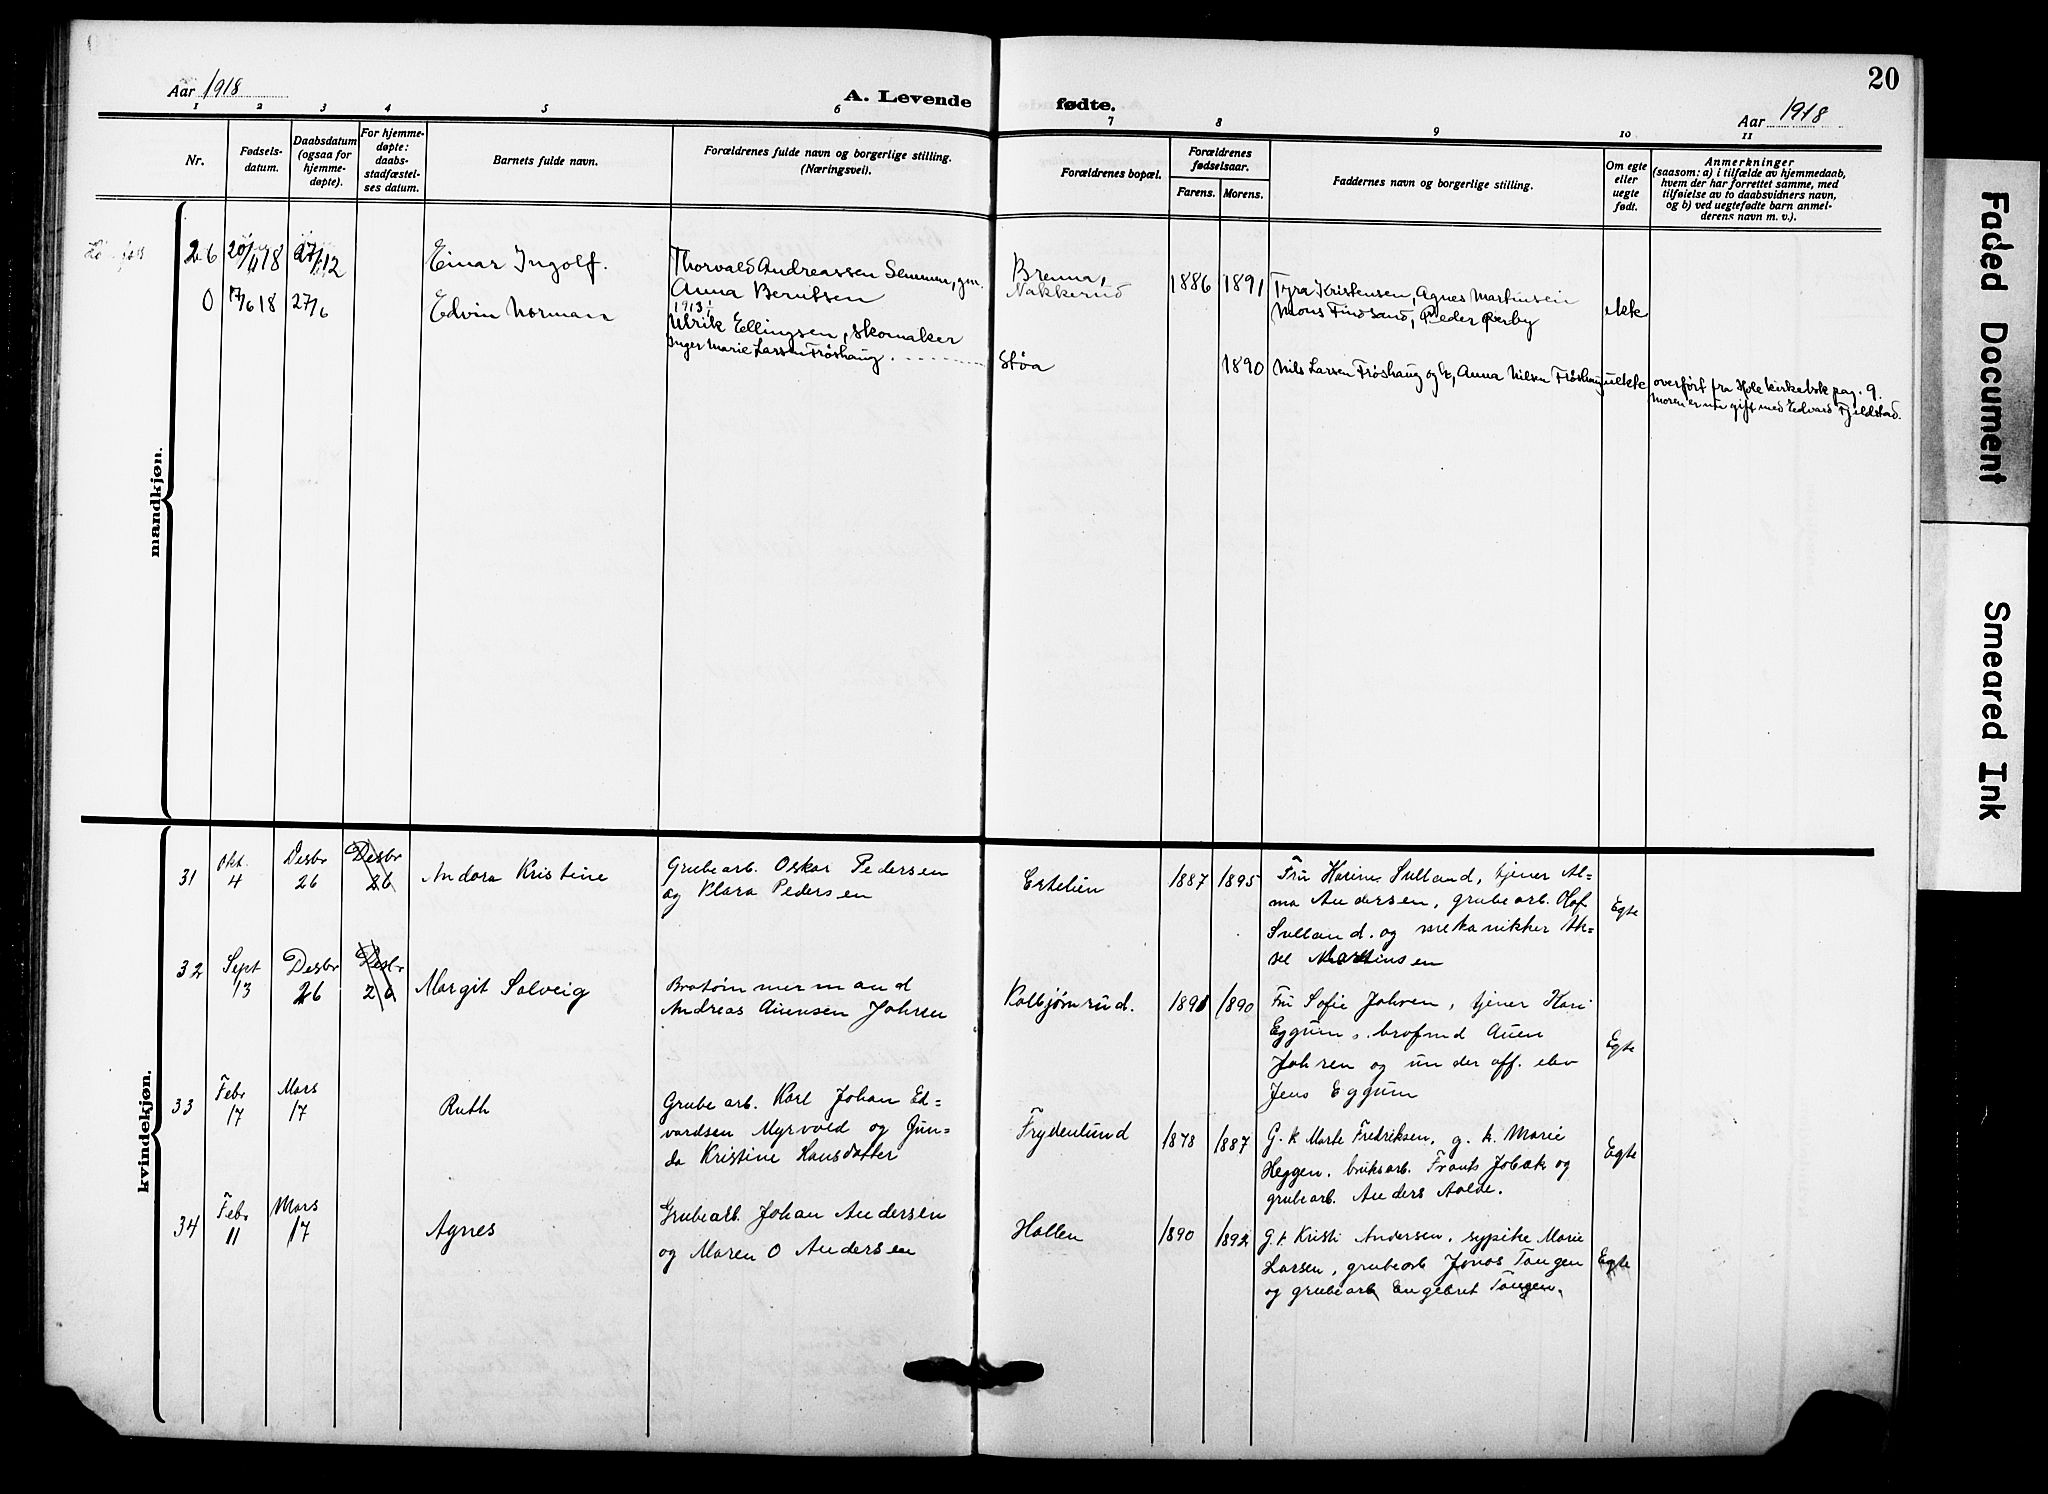 20
Aar 1918
A. Levende fødte.
Aar 1918
1 2 3 4 5 6 7 8 9 10 11
Nr.
Fødsels-
datum.
Daabsdatum
(ogsaa for
hjemme-
døpte).
For hjemme-
døpte:
daabs-
stadfæstel-
ses datum.
Barnets fulde navn.
Forældrenes fulde navn og borgerlige stilling.
(Næringsvei).
Forældrenes bopæl.
Forældrenes
fødselsaar.
Farens. Morens.
Faddernes navn og borgerlige stilling.
Om egte
eller
uegte
født.
Anmerkninger
(saasom: a) i tilfælde av hjemmedaab,
hvem der har forrettet samme, med
tilføielse av to daabsvidners navn,
og b) ved uegtefødte barn anmel-
derens navn m. v.).
mandkjøn.
26 20/11 18 27/12 Einar Ingolf.
Thorvald Andreassen Semmen, gm.
Anna Berntsen
1913
Brenna,
Nakkerud
1886 1891
Tyra Kristensen, Agnes Martinsen
Mons Findsand, Peder Øverby
ekte
0 17/6 18 27/6 Edvin Norman
Ulrik Ellingsen, skomaker
Inger Marie Larsen Frøshaug
Støa
1890
Nils Larsen Frøshaug og h, Anna Nilsen Frøshaug
uekte
overført fra Hole kirkebok pag. 9.
moren er nu gift med Edvard Fjeldstad.
kvindekjøn.
31 Okt. 4 Desbr 26 Desbr 26 Andora Kristine
Grubearb. Oskar Pedersen
og Klara Pedersen
1887 1895
Fru Karine Sulland, tjener Al=
ma Andersen, grubearb. Haf
Sulland. og mekanikker Ak=
sel Martinsen
Egte
32 Sept 13 Desbr 26 Desbr 26 Margit Solveig
Bratømmermand
Andreas Auensen Johren
Kolbjørnrud.
1891 1890
Fru Sofie Johren, tjener Kari
Eggum, brofmd Auen
Johren og under off. elev
Jens Eggum
Egte
33 Febr 17 Mars 17 Ruth
Grubearb. Karl Johan Ed=
vardsen Myrvold og Gun=
da Kristine Hansdatter
Frydenlund
1878 1887
G. k Marte Fredriksen, g. k. Marie
Heggen, bruksarb. Frants Jobak og
grubearb. Anders Aalde.
Egte
34 Febr 11 Mars 17 Agnes
Grubearb. Johan Andersen
og Maren O Andersen
Hallen
1890 1892
G. k Kristi Andersen, sypike Marie
Larsen, grubearb Jonas Tangen
og grubearb Engebret Tangen.
Egte
Faded Document
Smeared Ink